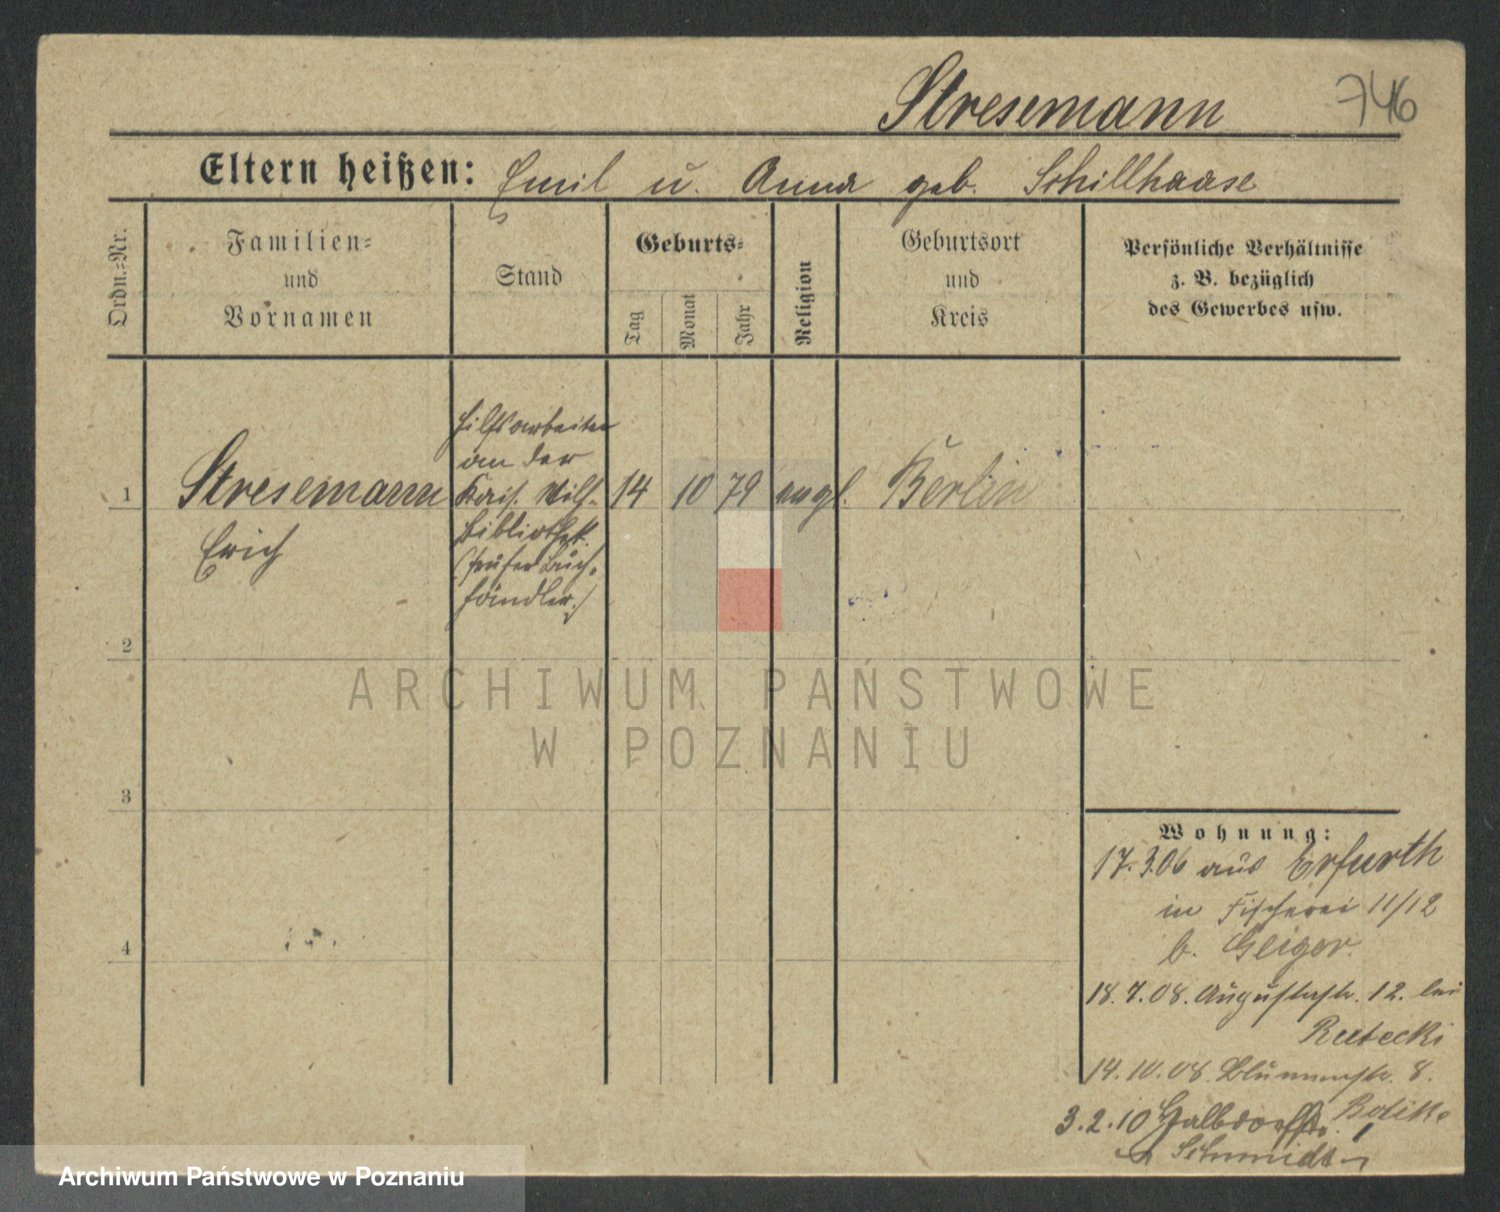 Stresemann 746
Eltern heißen: Emil u. Anna geb. Schillhaase
Ordn.=Nr.
Familien=
und
Vornamen
Stand
Geburts=
Tag
Monat
Jahr
Religion
Geburtsort
und
Kreis
Persönliche Verhältnisse
z. B. bezüglich
des Gewerbes usw.
1
Stresemann
Erich
Hilfsarbeiter
an der
Kais. Wilh.
Bibliothek.
(früher Buch-
händler.)
14 10 79 evgl. Berlin
2
3
4
ARCHIWUM PAŃSTWOWE
W POZNANIU
Wohnung:
17.3.06 aus Erfurth
in Fischerei 11/12
b. Geiger.
18.7.08. Augustastr. 12. bei
Rutecki
14.10.08. Blumenstr. 8.
3.2.10
Schmidt
Archiwum Państwowe w Poznaniu